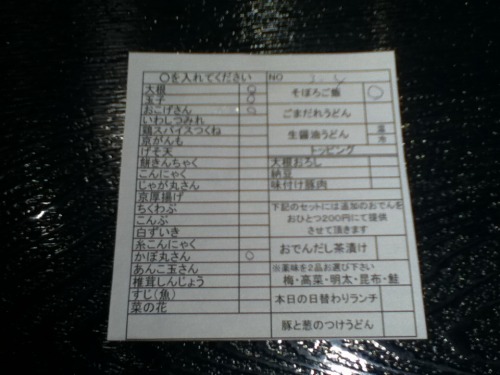 〇を入れてください
大根 〇
玉子 〇
おこげさん 〇
いわしつみれ
鶏スパイスつくね
京がんも
げそ天
餅きんちゃく
こんにゃく
じゃが丸さん
京厚揚げ
ちくわぶ
こんぶ
白ずいき
糸こんにゃく
かぼ丸さん 〇
あんこ玉さん
椎茸しんじょう
すじ(魚)
菜の花
NO
そぼろご飯 〇
ごまだれうどん
生醤油うどん 温 冷
トッピング
大根おろし
納豆
味付け豚肉
下記のセットには追加のおでんを
おひとつ200円にて提供
させて頂きます
おでんだし茶漬け
※薬味を2品お選び下さい
梅・高菜・明太・昆布・鮭
本日の日替わりランチ
豚と葱のつけうどん